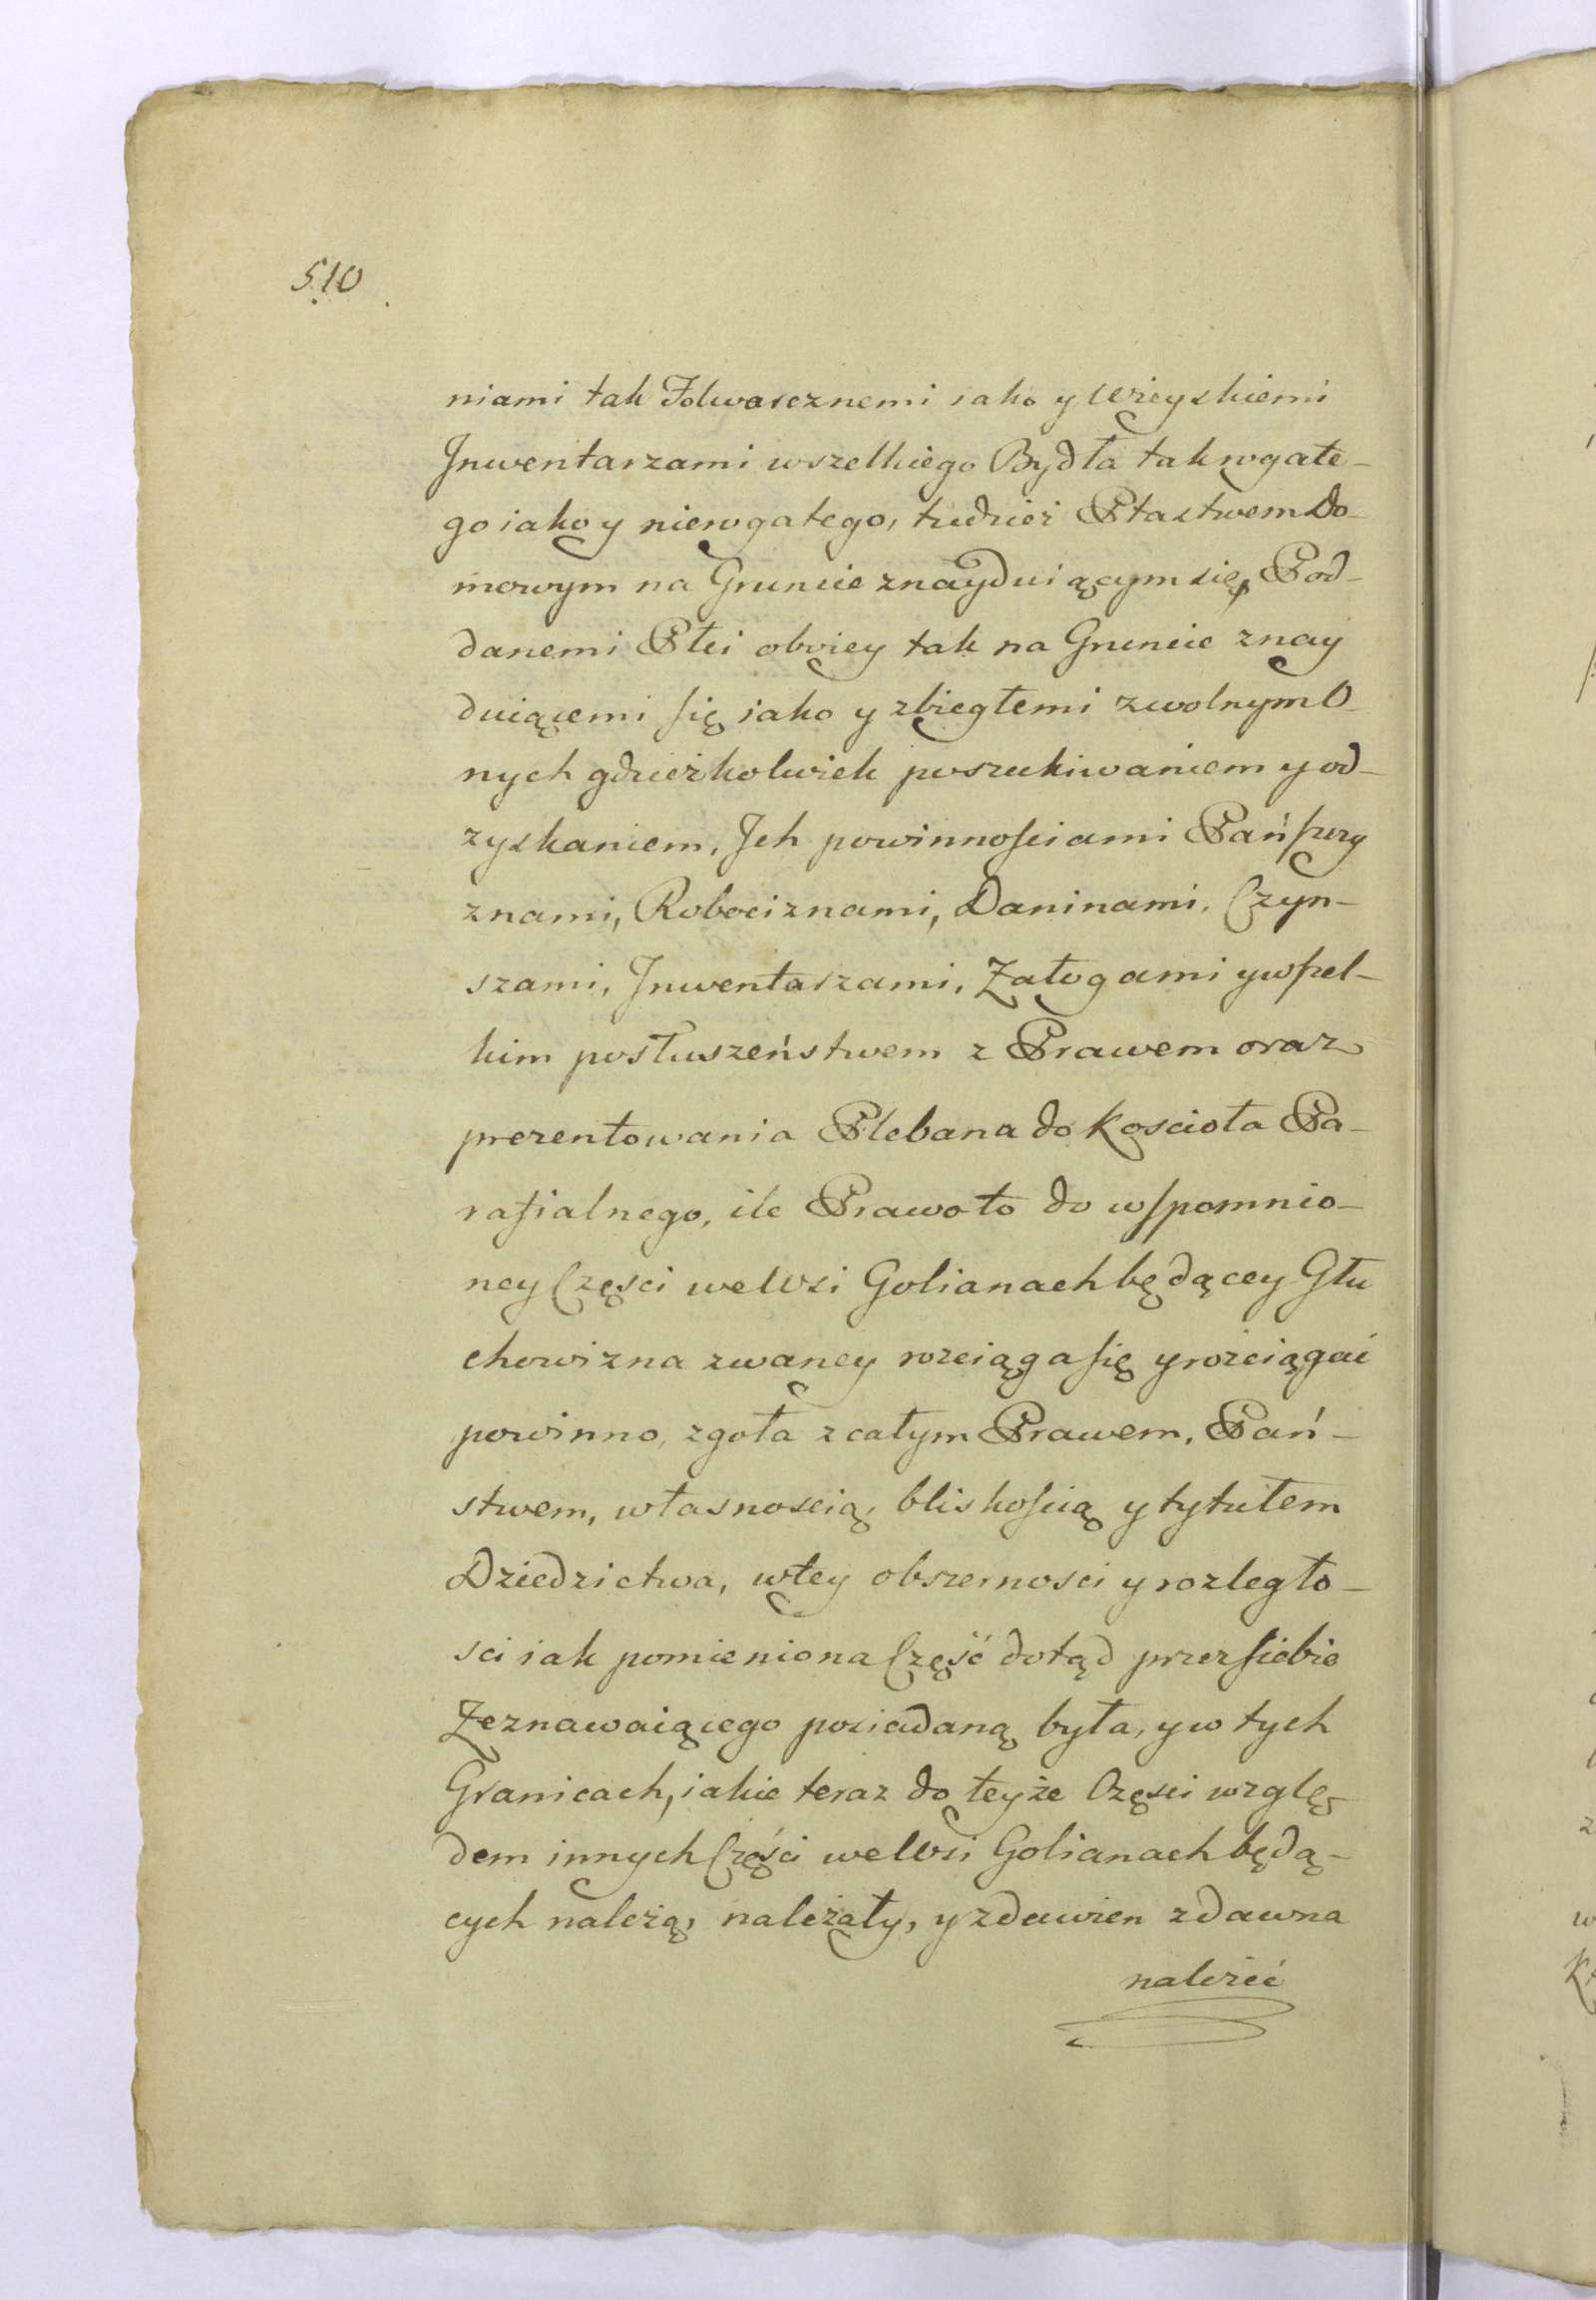 510
niami tak Folwarcznemi iako y Wieyskiemi
Jnwentarzami wszelkiego Bydła tak rogate-
go iako y nierogatego, tudzież Ptastwem Do-
mowym na Gruncie znayduiącym się, Pod-
danemi Płci oboiey tak na Gruncie znay
duiącemi się iako y zbiegłemi z wolnym O-
nych gdzieżkolwiek poszukiwaniem y od-
zyskaniem, Jch powinnościami Pańszczy
znami, Robociznami, Daninami, Czyn-
szami, Jnwentarzami, Załogami y wszel-
kim posłuszeństwem z Prawem oraz
prezentowania Plebana do Koscioła Pa-
rafialnego, ile Prawo to do wspomnio-
ney Częsci we Wsi Golianach będącey Głu
chowizna zwaney rozciąga się y rozciągać
powinno, zgoła z całym Prawem, Pań-
stwem, własnoscią, bliskoscią y tytułem
Dziedzictwa, w tey obszernosci y rozległo-
sci iak pomieniona Część dotąd przez siebie
Zeznawaiącego posiadaną była, y w tych
Granicach, iakie teraz do teyże Częsci wzglę-
dem innych Częśći we Wsi Golianach będą-
cych należą, należały, y zdawien zdawna
należeć